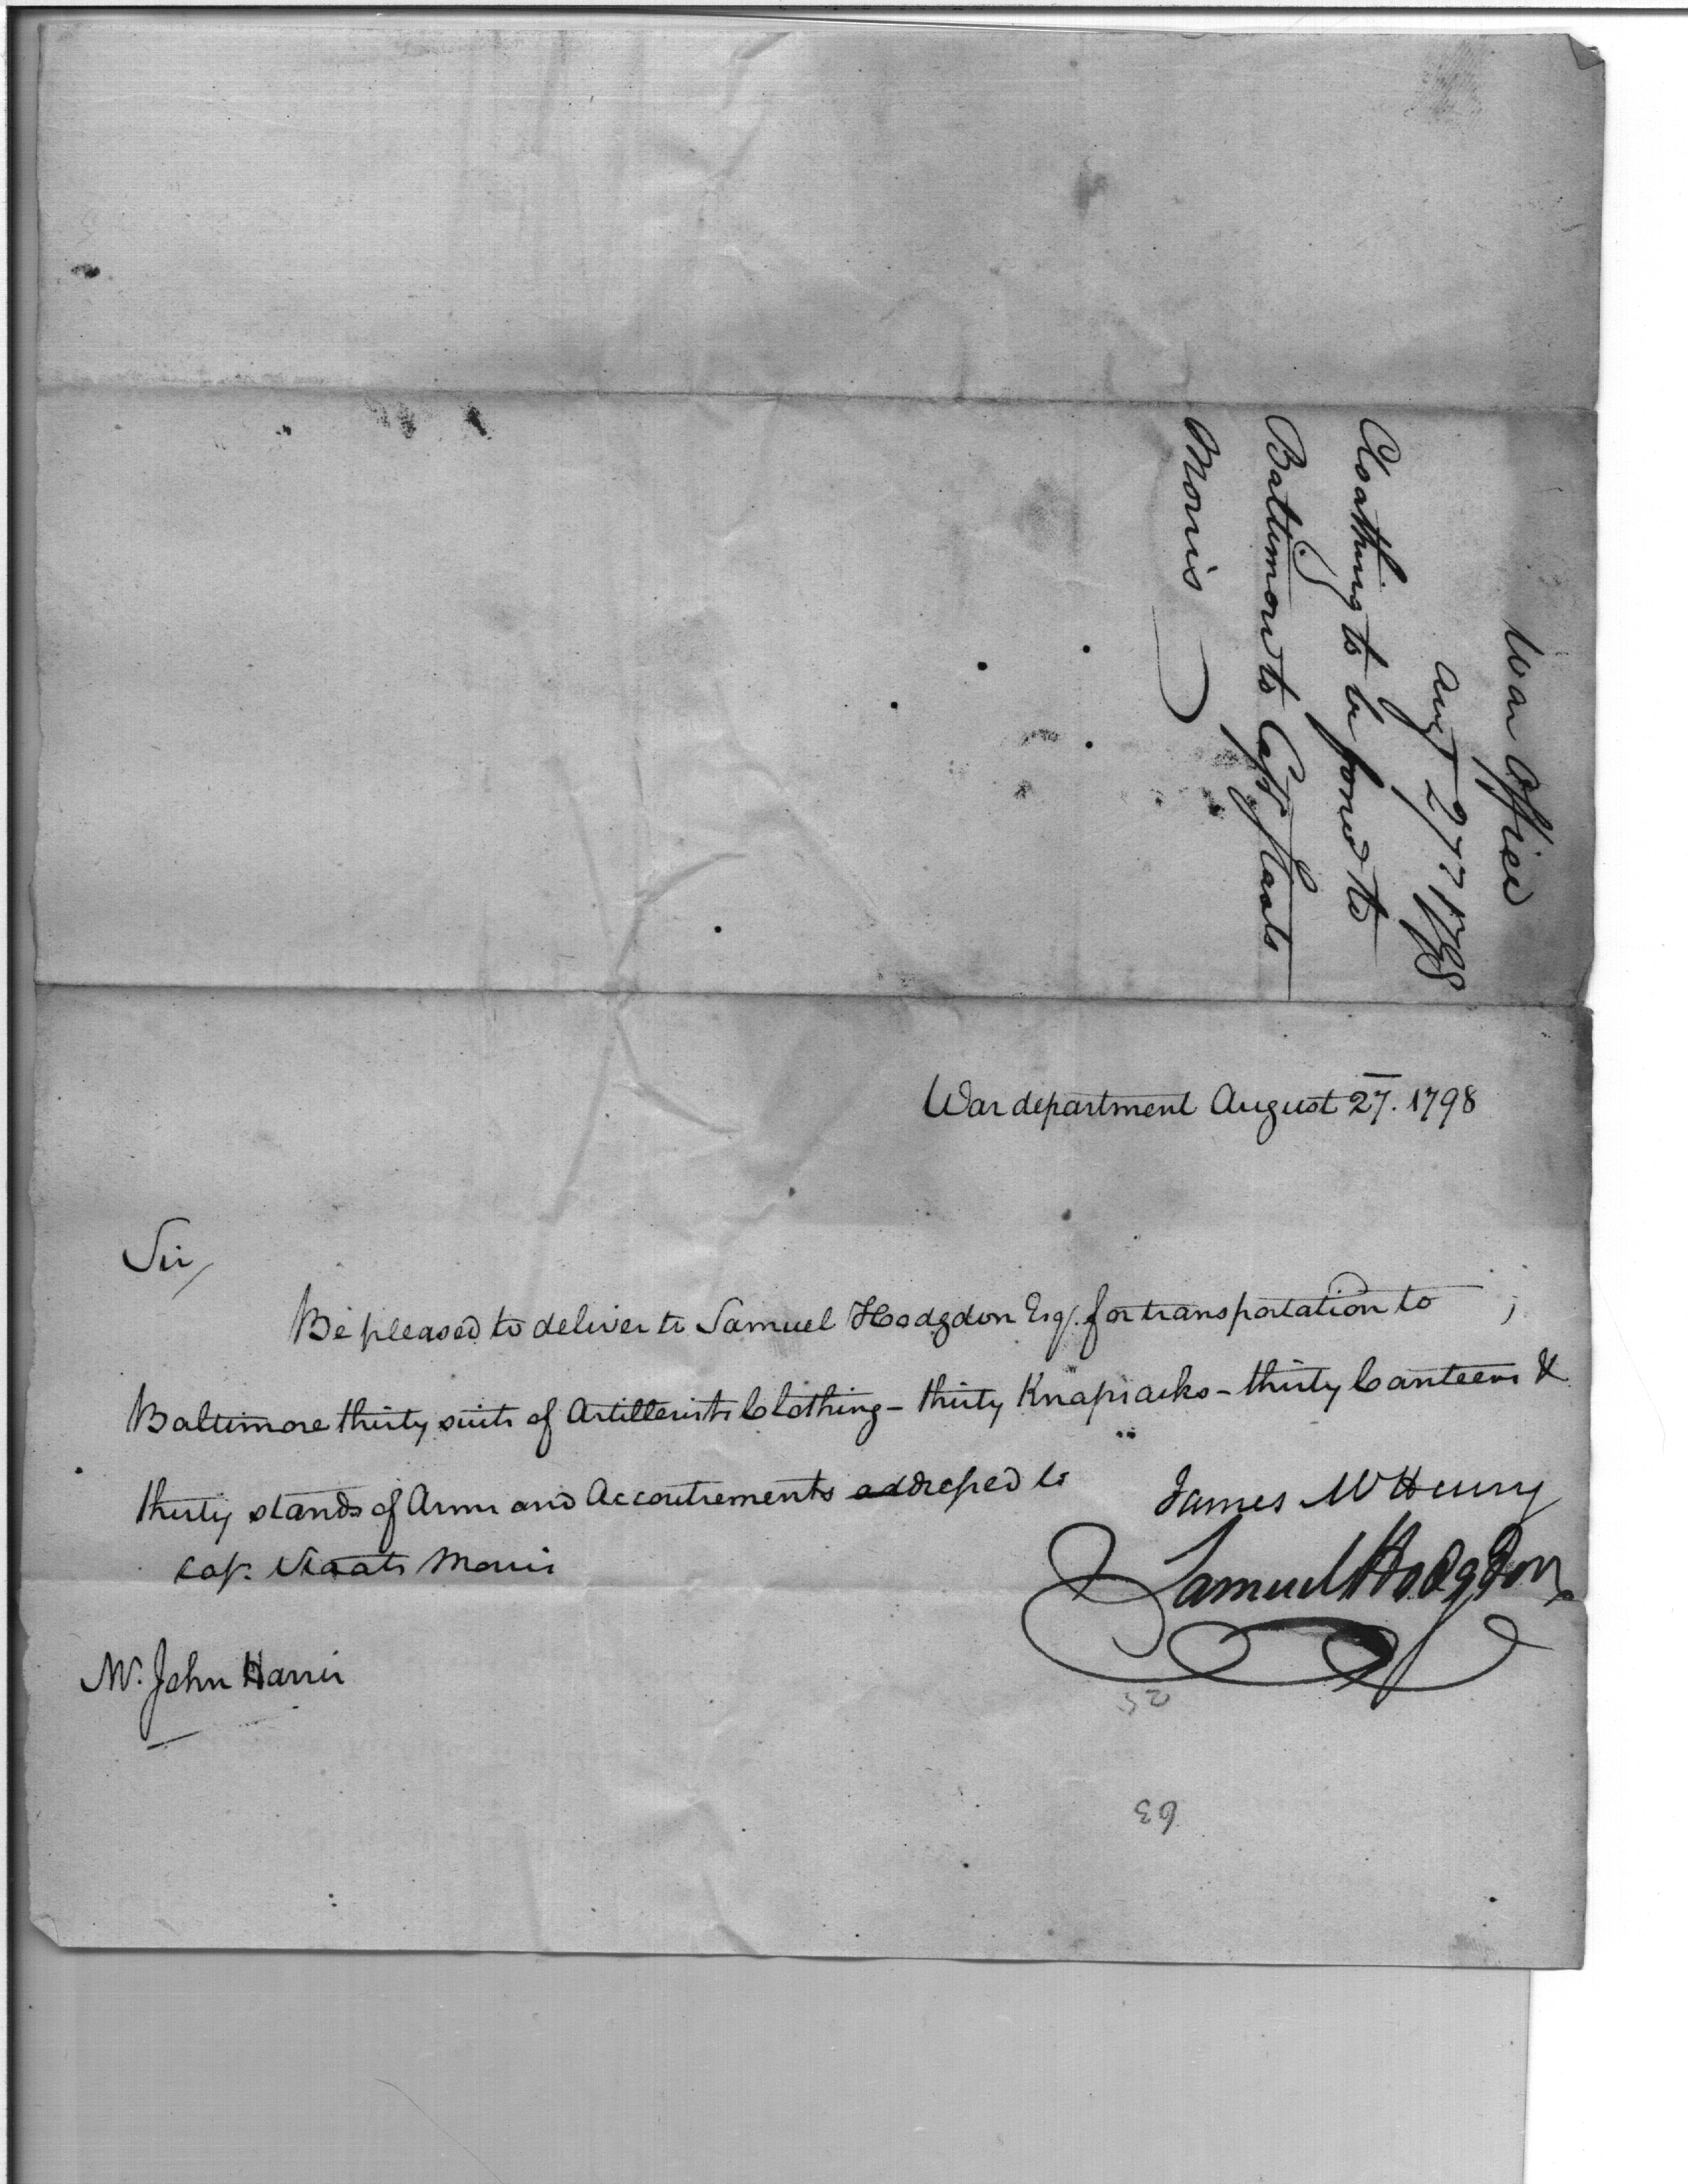 War Office
Augt 27th 1798
Cloathing to be forwd to
Baltimore to Capt Staats
Morris
War department August 27. 1798
Sir,
Be pleased to deliver to Samuel Hodgdon Esq. for transportation to
Baltimore thirty suits of Artillerists Clothing - thirty Knapsacks - thirty Canteens &
thirty stands of Arms and Accoutrements addressed to
Cap. Staats Morris
James McHenry
Samuel Hodgdon
Mr. John Harris
25
63